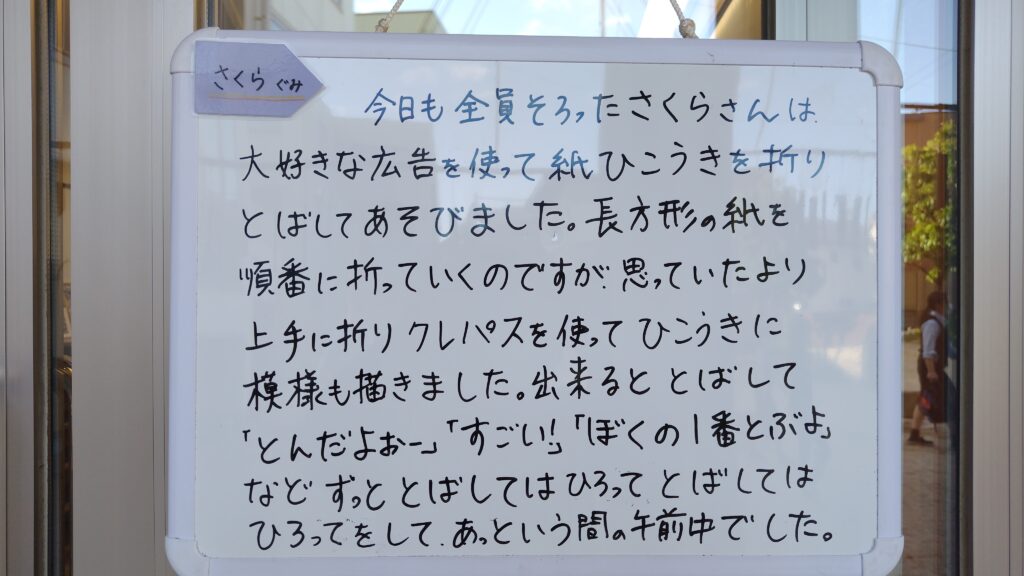 さくらぐみ
今日も全員そろったさくらさんは
大好きな広告を使って紙ひこうきを折り
とばしてあそびました。長方形の紙を
順番に折っていくのですが思っていたより
上手に折りクレパスを使ってひこうきに
模様も描きました。出来るととばして
「とんだよぉー」「すごい!」「ぼくの1番とぶよ」
などずっととばしてはひろって、とばしては
ひろってをして、あっという間の午前中でした。